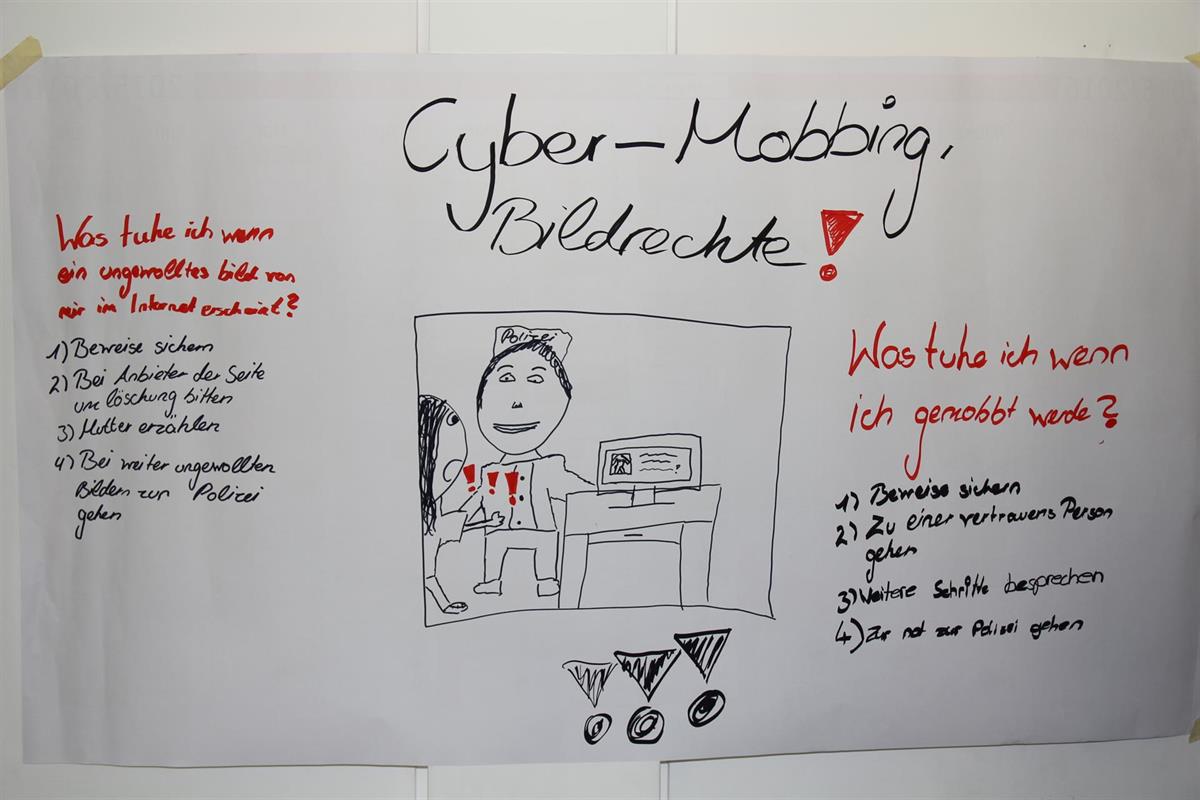 Cyber-Mobbing,
Bildrechte!
Was tuhe ich wenn
ein ungewolltes bild von
mir im Internet erscheint?
1) Beweise sichern
2) Bei Anbieter der Seite
um löschung bitten
3) Mutter erzählen
4) Bei weiter ungewollten
Bildern zur Polizei
gehen
Polizei
!!!
Was tuhe ich wenn
ich gemobbt werde?
1) Beweise sichern
2) Zu einer vertrauens Person
gehen
3) Weitere Schritte besprechen
4) Zur not zur Polizei gehen
!!!